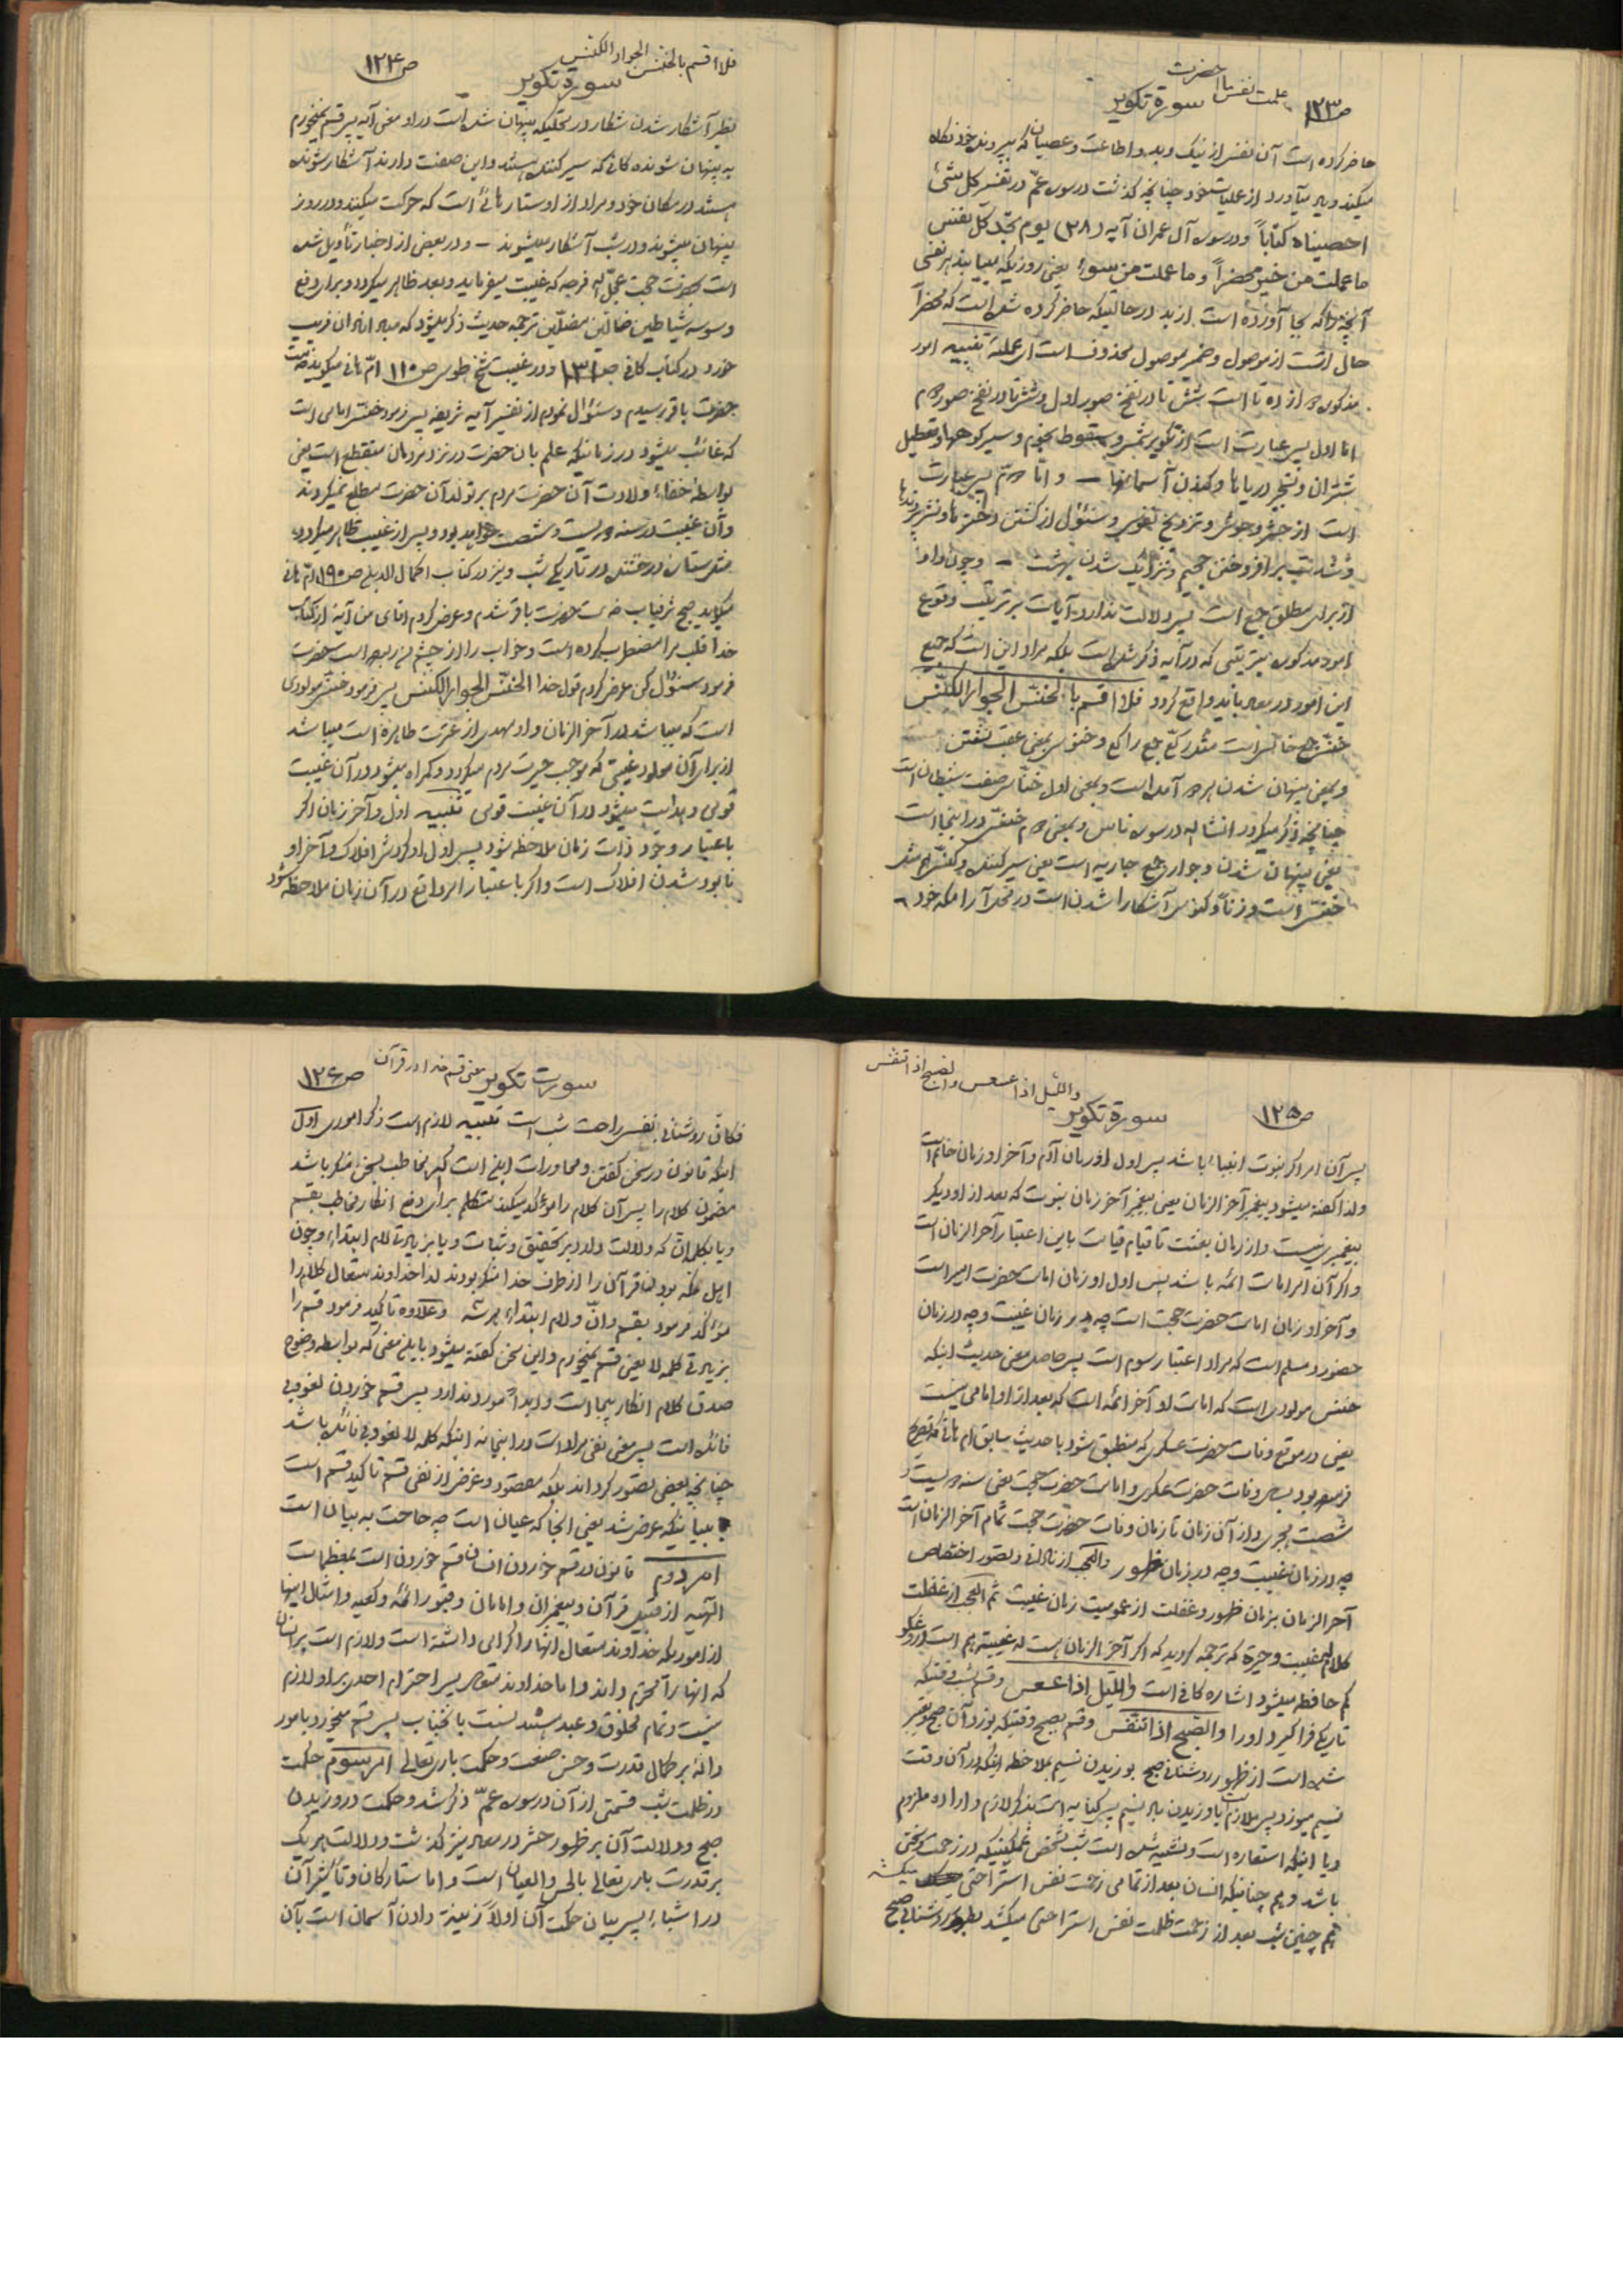 علمت نفس ما احضرت
ص۱۲۳ سورة تکویر
حاضر کرده است آن نفس از نیک و بد و اطاعت و عصیان که
میکند و بد میآورد از عملیات خود چنانچه گذشت در سوره عمّ در تفسیر کل شئ
احصیناه کتاباً و در سوره آل عمران آیه (۲۸) یوم تجد کل نفس
ما عملت من خیر محضراً و ما عملت من سوء یعنی روزیکه مییابد هر نفسی
آنچه را که بجا آورده است از بد در حالیکه حاضر کرده شده است که محضراً
حال است از موصول و ضمیر موصول محذوف است ای عملته تنبیه امور
مذکوره دوازده تا است شش تا در نفخ صور اول و شش تا در نفخ صور دوم
اما اول پس عبارت است از تکویر شمس و سقوط نجوم و سیر کوهها و تعطیل
شتران و تفجیر دریاها و کندن آسمانها — و اما دوم پس عبارت
است از حشر وحوش و تزویج نفوس و سئوال از کشتن دخترها و نشر
و شدت برافروختن جحیم و نزدیک شدن بهشت — و چون واو
از برای مطلق جمع است پس دلالت ندارد آیات بر ترتیب وقوع
امور مذکوره بترتیبی که در آیه ذکر شده است بلکه مراد این است که جمیع
این امور در معاد باید واقع گردد فلا اقسم بالخنس الجوار الکنس
خنس جمع خانس است مثل رکع جمع راکع و خنوس بمعنی عقب گشتن
و بمعنی پنهان شدن هر دو آمده است و بمعنی اول خناس صفت شیطان است
چنانچه ذکر میگردد انشاالله در سوره ناس و بمعنی دوم خنس در اینجا است
یعنی پنهان شدن و جوار جمع جاریه است یعنی سیر کننده و کنس هم مثل
خنس است وزناً و کنوس آشکارا شدن است در محل آرامگه خود
فلا اقسم بالخنس الجوار الکنس
سورة تکویر ص۱۲۴
نظیر آشکار شدن شکار در محلیکه پنهان شده است در او معنی آیه پس قسم نمیخورم
به پنهان شونده گانی که سیر کننده هستند و این صفت دارند آشکار شونده
هستند در مکان خود و مراد از او ستاره هائی است که حرکت میکنند و در روز
پنهان میشوند و در شب آشکار میشوند — و در بعضی از اخبار تأویل شده
است بحضرت حجت عجل الله فرجه که غیبت میفرماید و بعد ظاهر میگردد و برای رفع
وسوسه شیاطین ضالین مضلین ترجمه حدیث ذکر میشود که مبادا انسان فریب
خورد در کتاب کافی ص ۱۳۱ و در غیبت شیخ طوسی ص ۱۱۰ ام هانی میگوید خدمت
حضرت باقر رسیدم و سئوال نمودم از تفسیر آیه شریفه پس فرمود خنس امامی است
که غائب میشود در زمانیکه علم بآن حضرت در نزد مردمان منقطع است یعنی
بواسطه خفاء ولادت آن حضرت مردم بر تولد آن حضرت مطلع نمیگردند
و آن غیبت در سنه دویست و شصت خواهد بود و پس از غیبت ظاهر میگردد
مثل ستاره درخشنده در تاریکی شب و نیز در کتاب اکمال الدین ص ۱۹۰ ام هانی
میگوید صبح شرفیاب خدمت حضرت باقر شدم و عرض کردم اقای من آیه از کتاب
خدا قلب مرا مضطرب کرده است و خواب را از چشم من ربوده است حضرت
فرمود سئوال کن عرض کردم قول خدا الخنس الجوار الکنس پس فرمود خنس مولودی
است که میباشد در آخر الزمان و او مهدی از عترت طاهره است میباشد
از برای آن مولود غیبتی که موجب حیرت مردم میگردد و گمراه میشود در آن غیبت
قومی و هدایت میشود در آن غیبت قومی تنبیه اول و آخر زمان اگر
باعتبار وجود ذات زمان ملاحظه شود پس اول او گردش افلاک و آخر او
نابود شدن افلاک است و اگر باعتبار امر واقع در آن زمان ملاحظه شود
واللیل اذا عسعس والصبح اذا تنفس
ص۱۲۵ سورة تکویر
پس آن امر اگر نبوت انبیاء باشد پس اول او زمان آدم و آخر او زمان خاتم است
ولذا گفته میشود پیغمبر آخر الزمان یعنی پیغمبر آخر زمان نبوت که بعد از او دیگر
پیغمبری نیست و از زمان بعثت تا قیام قیامت باین اعتبار آخر الزمان است
و اگر آن امر امامت ائمه باشد پس اول او زمان امامت حضرت امیر است
و آخر او زمان امامت حضرت حجت است چه در زمان غیبت و چه در زمان
حضور و مسلم است که مراد اعتبار سوم است پس حاصل معنی حدیث اینکه
خنس مولودی است که امامت او آخر ائمه است که بعد از او امامی نیست
یعنی در موقع وفات حضرت عسکری که منطبق شود با حدیث سابق ام هانی که تصریح
فرموده بود بسال وفات حضرت عسکری و امامت حضرت حجت یعنی سنه دویست و
شصت هجری و از آن زمان تا زمان وفات حضرت حجت تمام آخر الزمان است
چه در زمان غیبت و چه در زمان ظهور و العجب از نادانی و تصور اختصاص
آخر الزمان بزمان ظهور و غفلت از عمومیت زمان غیبت ثم العجب از غفلت
کلام له غیبت و حیرة که ترجمه گردید که اگر آخر الزمان است له غیبت هم است دروغگو
کم حافظه میشود اشاره کافی است واللیل اذا عسعس و قسم بشب وقتیکه
تاریکی فراگیرد او را والصبح اذا تنفس و قسم بصبح وقتیکه بوزد آن صبح تعبیر
شده است از ظهور روشنائی صبح بوزیدن نسیم بملاحظه اینکه در آن وقت
نسیم میوزد پس ملازم با وزیدن باد نسیم پس کنایه است بذکر لازم و اراده ملزوم
و یا اینکه استعاره است و تشبیه شده است شب بشخص غمگینیکه در زحمت و سختی
باشد و هم چنانیکه انسان بعد از تمامی زحمت نفس استراحتی میکشد
هم چنین شب بعد از زحمت ظلمت نفس استراحتی میکشد بظهور روشنائی صبح
معنی قسم خدا در قرآن
سورت تکویر ص۱۲۶
فکان روشنائی نفس راحت شب است تنبیه لازم است ذکر اموری اول
اینکه قانون در سخن گفتن و محاورات ابلغ است که اگر مخاطب بسخن منکر باشد
مضمون کلام را پس آن کلام را مؤکد میکند متکلم برای دفع انکار مخاطب بقسم
و یا بکلماتی که دلالت دارد بر تحقیق و ثبات و یا بزیادتی لام ابتداء و چون
اهل مکه بودن قرآن را از طرف خدا منکر بودند لذا خداوند متعال کلام را
مؤکد فرمود بقسم و انّ و لام ابتداء و علاوه تاکید فرمود قسم را
بزیادتی کلمه لا یعنی قسم نمیخورم و این سخن گفته میشود باین معنی که بواسطه وضوح
صدق کلام انکار بیجا است و ابداً مورد ندارد پس قسم خوردن لغو و بی
فائده است پس معنی نفی مراد است در اینجا نه اینکه کلمه لا لغو و بی فائده باشد
چنانچه بعضی تصور کرده اند بلکه مقصود و غرض از نفی قسم تاکید قسم است
ببیانیکه عرض شد یعنی انجا که عیان است چه حاجت به بیان است
امر دوم قانون در قسم خوردن انسان قسم خوردن است بمعظمات
الهیه از قبیل قرآن و پیغمبران و امامان و قبور ائمه و کعبه و امثال اینها
از اموریکه خداوند متعال انها را گرامی داشته است و لازم است بر انسان
که انها را محترم داند و اما خداوند متعال پس احترام احدی بر او لازم
نیست و تمام مخلوق و عبد هستند نسبت بانجناب پس قسم میخورد بامور
داله بر کمال قدرت و حسن صنعت و حکمت باری تعالی امر سوم حکمت
در ظلمت شب قسمتی از آن در سوره عمّ ذکر شد و حکمت در وزیدن
صبح و دلالت آن بر ظهور حشر در معاد نیز گذشت و دلالت هر یک
بر قدرت باری تعالی بالحس والعیان است و اما ستارگان و تأثیر آن
در اشیاء پس بیان حکمت آن اولاً زینة دادن آسمان است بآن